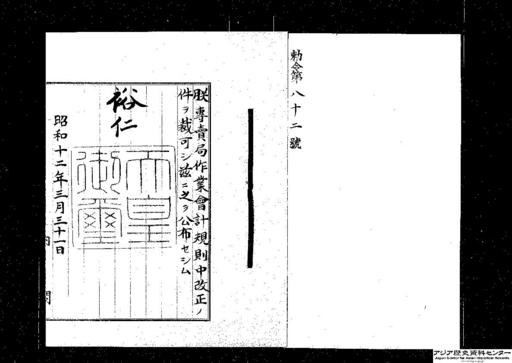 勅令第八十二號
朕專賣局作業會計規則中改正ノ
件ヲ裁可シ茲ニ之ヲ公布セシム
裕仁
天皇御璽
昭和十二年三月三十一日
内閣
アジア歴史資料センター
Japan Center for Asian Historical Records